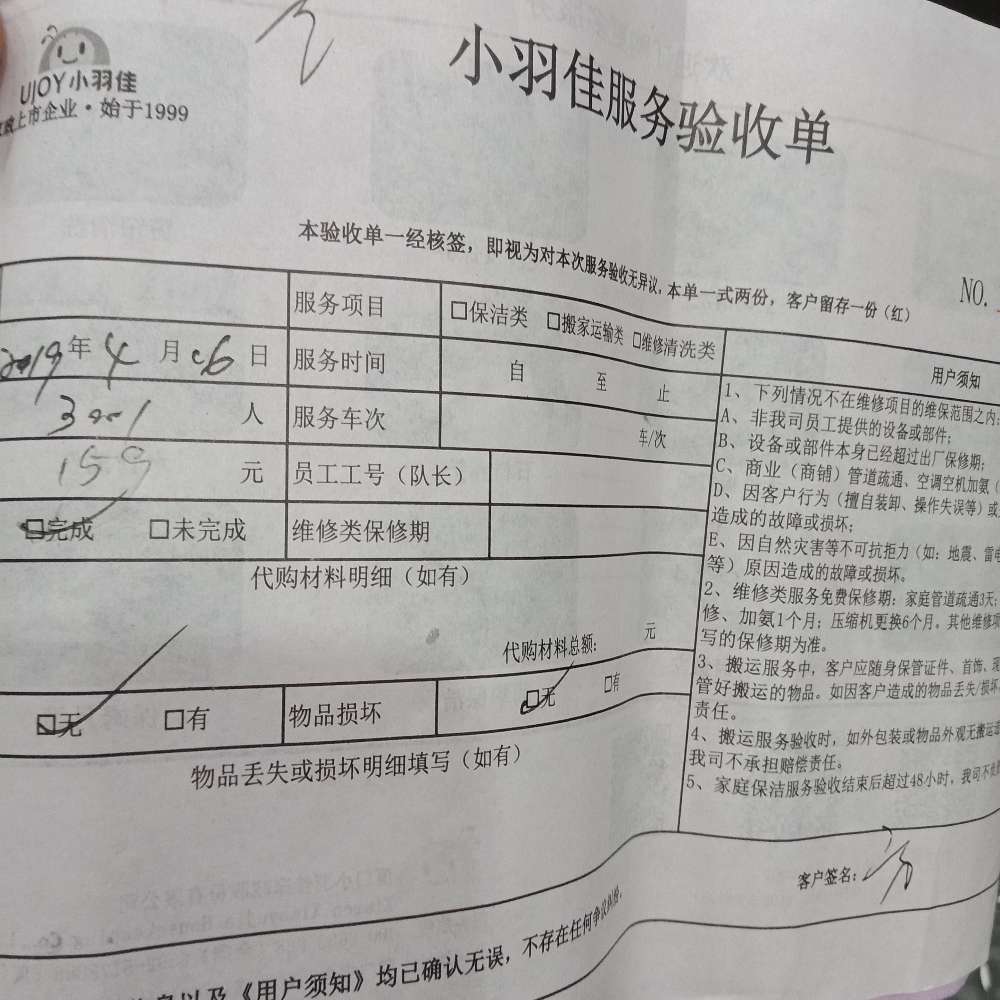 UJOY小羽佳
上市企业·始于1999
小羽佳服务验收单
本验收单一经核签，即视为对本次服务验收无异议，本单一式两份，客户留存一份（红）
NO.
服务项目 □保洁类 □搬家运输类 □维修清洗类
2019年4月26日 服务时间 自 至 止
人 服务车次 车/次
159 元 员工工号（队长）
□完成 □未完成 维修类保修期
代购材料明细（如有）
代购材料总额： 元
□无 □有 物品损坏 □无 □有
物品丢失或损坏明细填写（如有）
用户须知
1、下列情况不在维修项目的维保范围之内：
A、非我司员工提供的设备或部件；
B、设备或部件本身已经超过出厂保修期；
C、商业（商铺）管道疏通、空调空机加氨（
D、因客户行为（擅自装卸、操作失误等）或
造成的故障或损坏；
E、因自然灾害等不可抗拒力（如：地震、雷电
等）原因造成的故障或损坏。
2、维修类服务免费保修期：家庭管道疏通3天；
修、加氨1个月；压缩机更换6个月。其他维修项
写的保修期为准。
3、搬运服务中，客户应随身保管证件、首饰、现
管好搬运的物品。如因客户造成的物品丢失/损坏
责任。
4、搬运服务验收时，如外包装或物品外观无搬运
我司不承担赔偿责任。
5、家庭保洁服务验收结束后超过48小时，我司不
客户签名：
息以及《用户须知》均已确认无误，不存在任何争议纠纷。